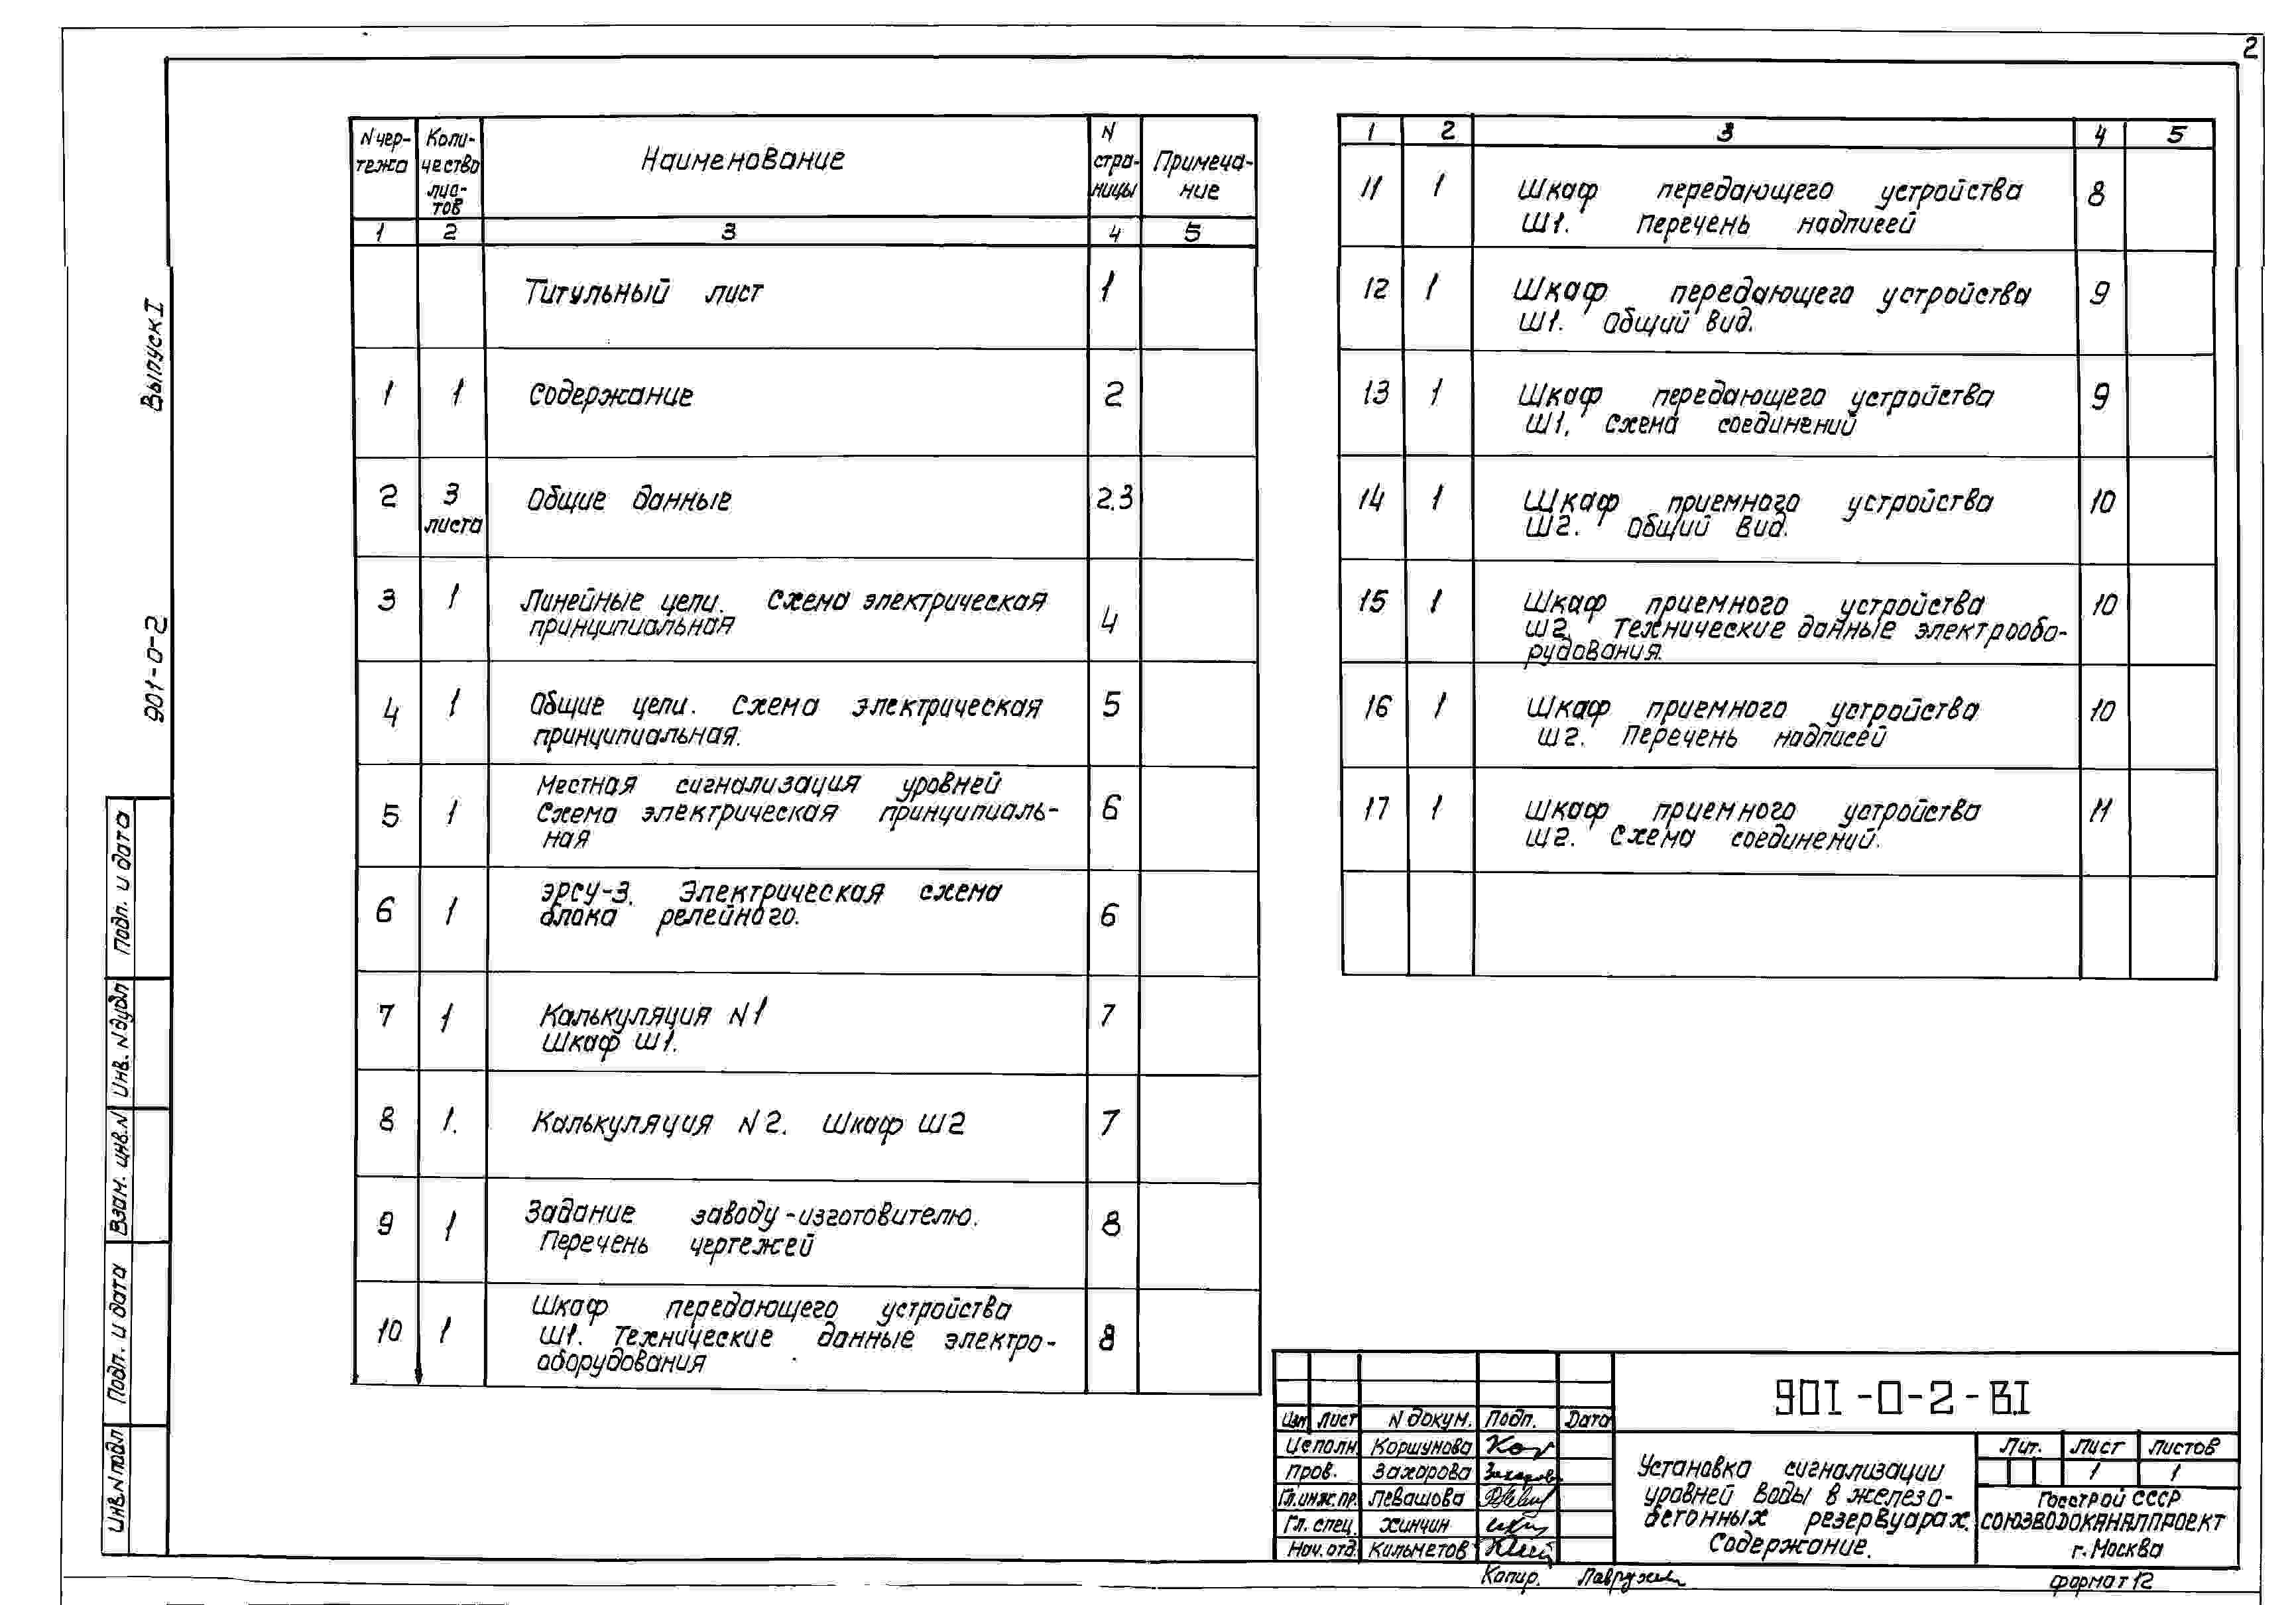 2
Выпуск I
901-0-2
Подп. и дата
Инв. N дубл
Взам. инв. N
Подп. и дата
Инв. N подл
N чер-
тежа
Коли-
чество
лис-
тов
Наименование
N
стра-
ницы
Примеча-
ние
1 2 3 4 5
Титульный лист 1
1 1 Содержание 2
2 3 Общие данные 2.3
листа
3 1 Линейные цепи. Схема электрическая
принципиальная 4
4 1 Общие цепи. Схема электрическая 5
принципиальная.
Местная сигнализация уровней
5 1 Схема электрическая принципиаль- 6
ная
6 1 ЭРСУ-3. Электрическая схема
блока релейного. 6
7 1 Калькуляция N1 7
Шкаф Ш1.
8 1. Калькуляция N2. Шкаф Ш2 7
9 1 Задание заводу-изготовителю. 8
Перечень чертежей
Шкаф передающего устройства
10 1 Ш1. Технические данные электро- 8
оборудования
1 2 3 4 5
11 1 Шкаф передающего устройства 8
Ш1. Перечень надписей
12 1 Шкаф передающего устройства 9
Ш1. Общий вид.
13 1 Шкаф передающего устройства 9
Ш1. Схема соединений
14 1 Шкаф приемного устройства 10
Ш2. Общий вид.
15 1 Шкаф приемного устройства 10
Ш2. Технические данные электрообо-
рудования.
16 1 Шкаф приемного устройства 10
Ш2. Перечень надписей
17 1 Шкаф приемного устройства 11
Ш2. Схема соединений.
901-0-2-В.I
Изм Лист N докум. Подп. Дата
Исполн. Коршунова
Пров. Захарова Захарова
Гл.инж.пр. Левашова
Гл. спец. Хинчин
Нач. отд. Кильметов
Установка сигнализации
уровней воды в железо-
бетонных резервуарах.
Содержание.
Лит. Лист Листов
1 1
Госстрой СССР
СОЮЗВОДОКАНАЛПРОЕКТ
г. Москва
Копир.
формат 12